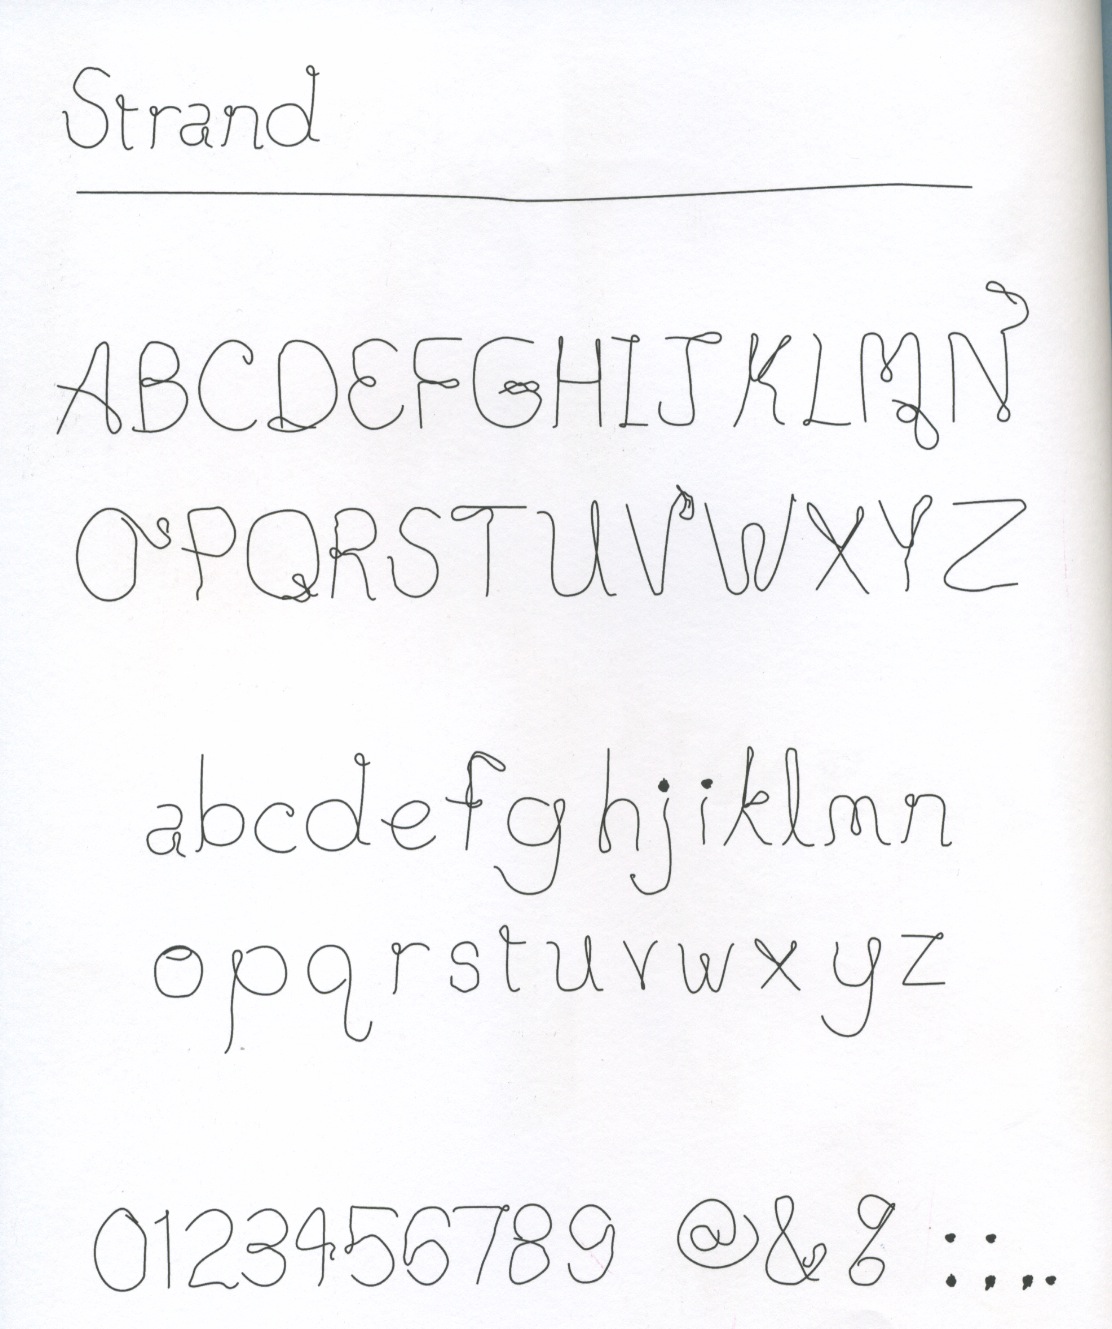 Strand
ABCDEFGHIJKLMN
OPQRSTUVWXYZ
abcdefghjiklmn
opqrstuvwxyz
0123456789 @&% :;,.